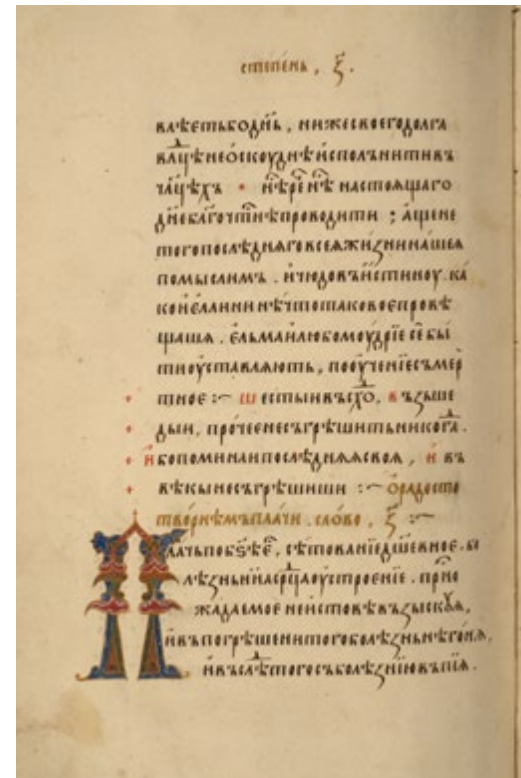 степень , ѯ҃ .
влѣетьбоднь , нижесвоегодолга
влцѣнеѻскоуднѣисполънитивъ
насташаго
днеблгочтнѣпроводити ; ащене
тогопослѣднѧговсеѧжизнинашеѧ
помыслимъ . ичюдовъистинноу . ка
коиеллининѣчтотаковоепровѣ
щаша . ельмаилюбомоудрїе себы
тиоуставлѧють , пооученїесъмер
тное :~ шестыивъсхо , възыше
дыи , прочеенесъгрѣшитьникога .
ибопоминаипослѣднѧѧсвоѧ , ивъ
вѣкынесъгрѣшиши :~ ѻрадосто
творнѣмъплачи . слово , ѯ҃ :~
Плачьпобѕѣе , сѣтованїедшевное . бо
лѣзньнаасрцаоустроенїе . прно
жадаемое неистовѣвъзыскѹѧ ,
ивъпогрѣшениитогоболѣзньнѣгонѧ ,
ивъслѣтогосъболѣзнїювъпїѧ .